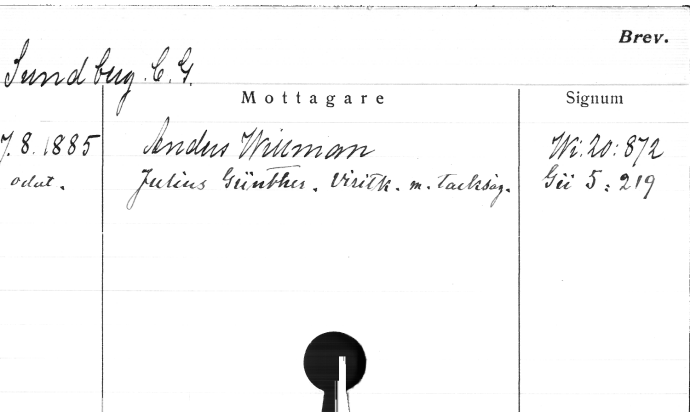 Brev.
Sundberg. C. G.
Mottagare Signum
7.8.1885 Anders Willman Wi: 20: 872
odat. Julius Günther. Visitk. m. tacksäg. Gü 5: 219